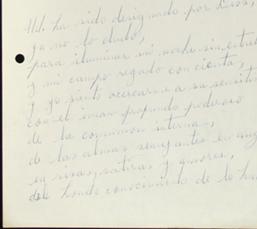 Ud. ha sido designado por Dios,
ya no lo dudo,
para iluminar mi noche sin estre
y mi campo regado con cienta,
y yo siento acercarse a su sensiti
con el imán profundo poderoso
de la comunion interna,
de las almas semejantes en ang
en risas, satiras y amores,
del hondo conocimiento de lo hu